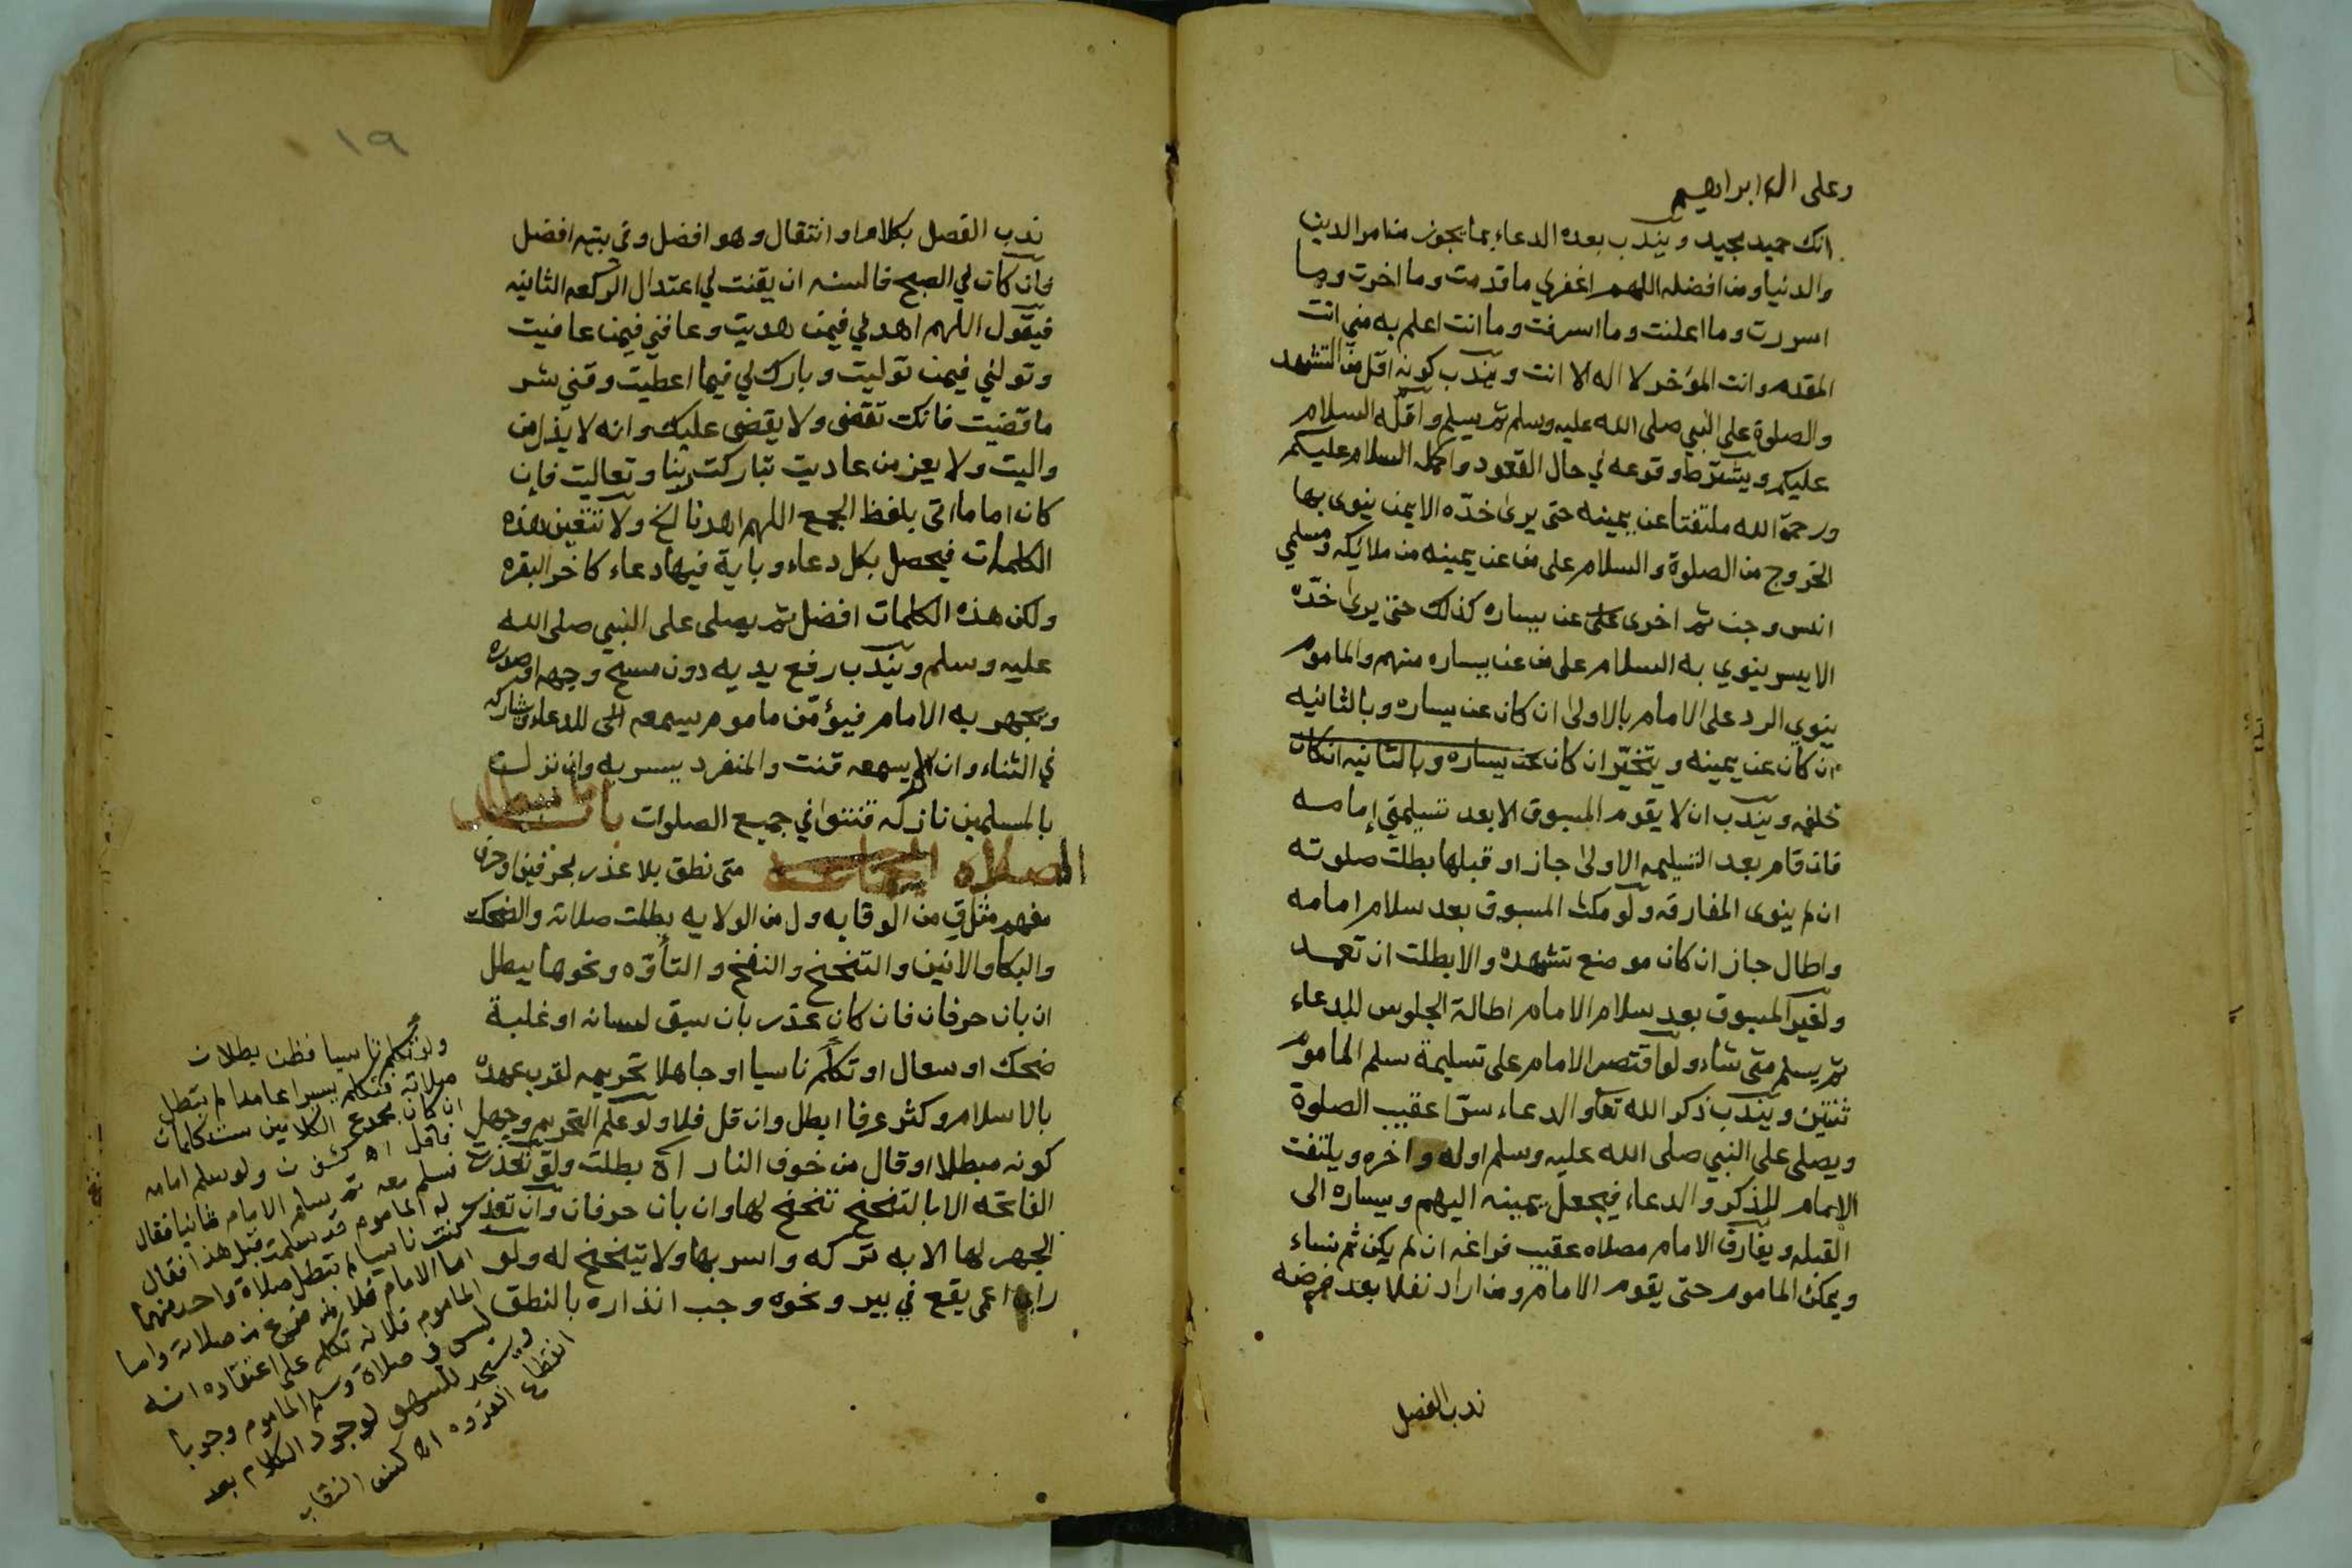 وعلى اله ابراهيم
انك حميد مجيد ويندب بعده الدعاء بما يجوز من امر الدين
والدنيا ومن افضله اللهم اغفرلي ما قدمت وما اخرت وما
اسررت وما اعلنت وما اسرفت وما انت اعلم به مني انت
المقدم وانت المؤخر لا اله الا انت ويندب كونه اقل من التشهد
والصلوة على النبي صلى الله عليه وسلم ثم يسلم واقله السلام
عليكم ويشترط وقوعه في حال القعود واكمله السلام عليكم
ورحمة الله ملتفتا عن يمينه حتى يرى خدّه الايمن ينوى بها
الخروج من الصلوة والسلام على من عن يمينه من ملائكه ومسلمي
انس وجن ثم اخرى على عن يساره كذلك حتى يرى خدّه
الايسر ينوي به السلام على من عن يساره منهم والماموم
ينوي الرد على الامام بالاولى ان كان عن يساره وبالثانيه
ان كان عن يمينه ويتخيّر ان كان عن يساره وبالثانيه ان كان
خلفه ويندب ان لا يقوم المسبوق الا بعد تسليمتي إمامه
فان قام بعد التسليمه الاولى جاز او قبلها بطلت صلوته
ان لم ينوى المفارقه ولو مكث المسبوق بعد سلام امامه
واطال جاز ان كان موضع تشهده والا بطلت ان تعمد
ولغير المسبوق بعد سلام الامام اطالة الجلوس للدعاء
ثم يسلم متى شاء ولو اقتصر الامام على تسليمة سلم الماموم
ثنتين ويندب ذكر الله تعا والدعاء سرّا عقيب الصلوة
ويصلى على النبي صلى الله عليه وسلم اوله واخره ويلتفت
الامام للذكر والدعاء فيجعل يمينه اليهم ويساره الى
القبله ويفارق الامام مصلاه عقيب فراغه ان لم يكن ثم نساء
ويمكث الماموم حتى يقوم الامام ومن اراد نفلا بعد فرضه
ندب الفصل
١٩
ندب الفصل بكلام او انتقال وهو افضل وفي بيته افضل
فان كان في الصبح فالسنه ان يقنت في اعتدال الركعه الثانيه
فيقول اللهم اهدني فيمن هديت وعافني فيمن عافيت
وتولني فيمن توليت وبارك لي فيما اعطيت وقني شر
ما قضيت فانك تقضى ولا يقضى عليك وانه لا يذل من
واليت ولا يعز من عاديت تباركت ربنا وتعاليت فإن
كان اماما اتى بلفظ الجمع اللهم اهدنا الخ ولا تتعين هذه
الكلمات فيحصل بكل دعاء وباية فيها دعاء كاخر البقره
ولكن هذه الكلمات افضل ثم يصلى على النبي صلى الله
عليه وسلم ويندب رفع يديه دون مسح وجهه او صدره
ويجهر به الامام فيؤمّن ماموم يسمعه الى للدعاء ويشاركه
في الثناء وان لم يسمعه قنت والمنفرد يسر به وان نزلت
بالمسلمين نازله قنتوا في جميع الصلوات باب
الصلاه متى نطق بلا عذر بحرفين او حرف
مفهم مثل ق من الوقايه ول من الولايه بطلت صلاته والضحك
والبكا والانين والتنحنح والنفخ والتأوّه ونحوها يبطل
ان بان حرفان فان كان عذر بان سبق لسانه او غلبة
ضحك او سعال او تكلّم ناسيا او جاهلا تحريمه لقرب عهده
بالاسلام وكثر عرفا ابطل وان قل فلا ولو علم التحريم وجهل
كونه مبطلا او قال من خوف النار آه بطلت ولو تعذرت
الفاتحه الا بالتنحنح تنحنح لها وان بان حرفان وان تعذر
الجهر لها الا به تركه واسر بها ولا يتنحنح له ولو
راى اعمى يقع في بير ونحوه وجب انذاره بالنطق
ولو تكلم ناسيا فظن بطلان
صلاته فتكلم يسيرا عامدا لم تبطل
ان كان مجموع الكلامين ست كلمات
فاقل اه ولو سلم امامه
فسلم معه ثم سلم الامام ثانيا فقال
له الماموم قد سلمت قبل هذا فقال
كنت ناسيا لم تبطل صلاة واحد منهما
اما الامام فلانه فرغ من صلاته واما
الماموم فلانه تكلم على اعتقاده انه
ليس في صلاة وسلم الماموم وجوبا
ويسجد للسهو لوجود الكلام بعد
انقطاع القدوه اه كشف النقاب